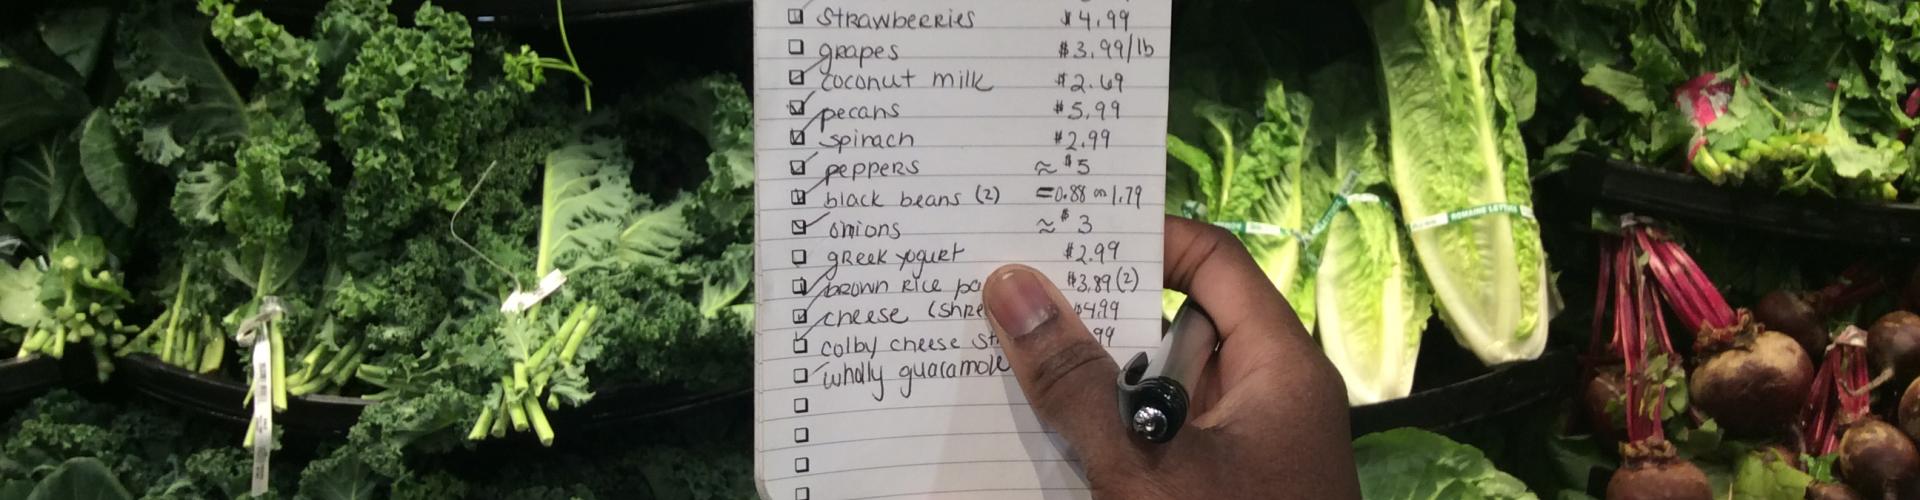 strawberries $4.99
grapes $3.99/lb
coconut milk $2.69
pecans $5.99
spinach $2.99
peppers ≈ $5
black beans (2) =0.88 on 1.79
onions ≈ $3
greek yogurt $2.99
brown rice pa $3.89 (2)
cheese (shre $4.99
colby cheese st 99
wholly guacamole
ROMAINE LETTUCE